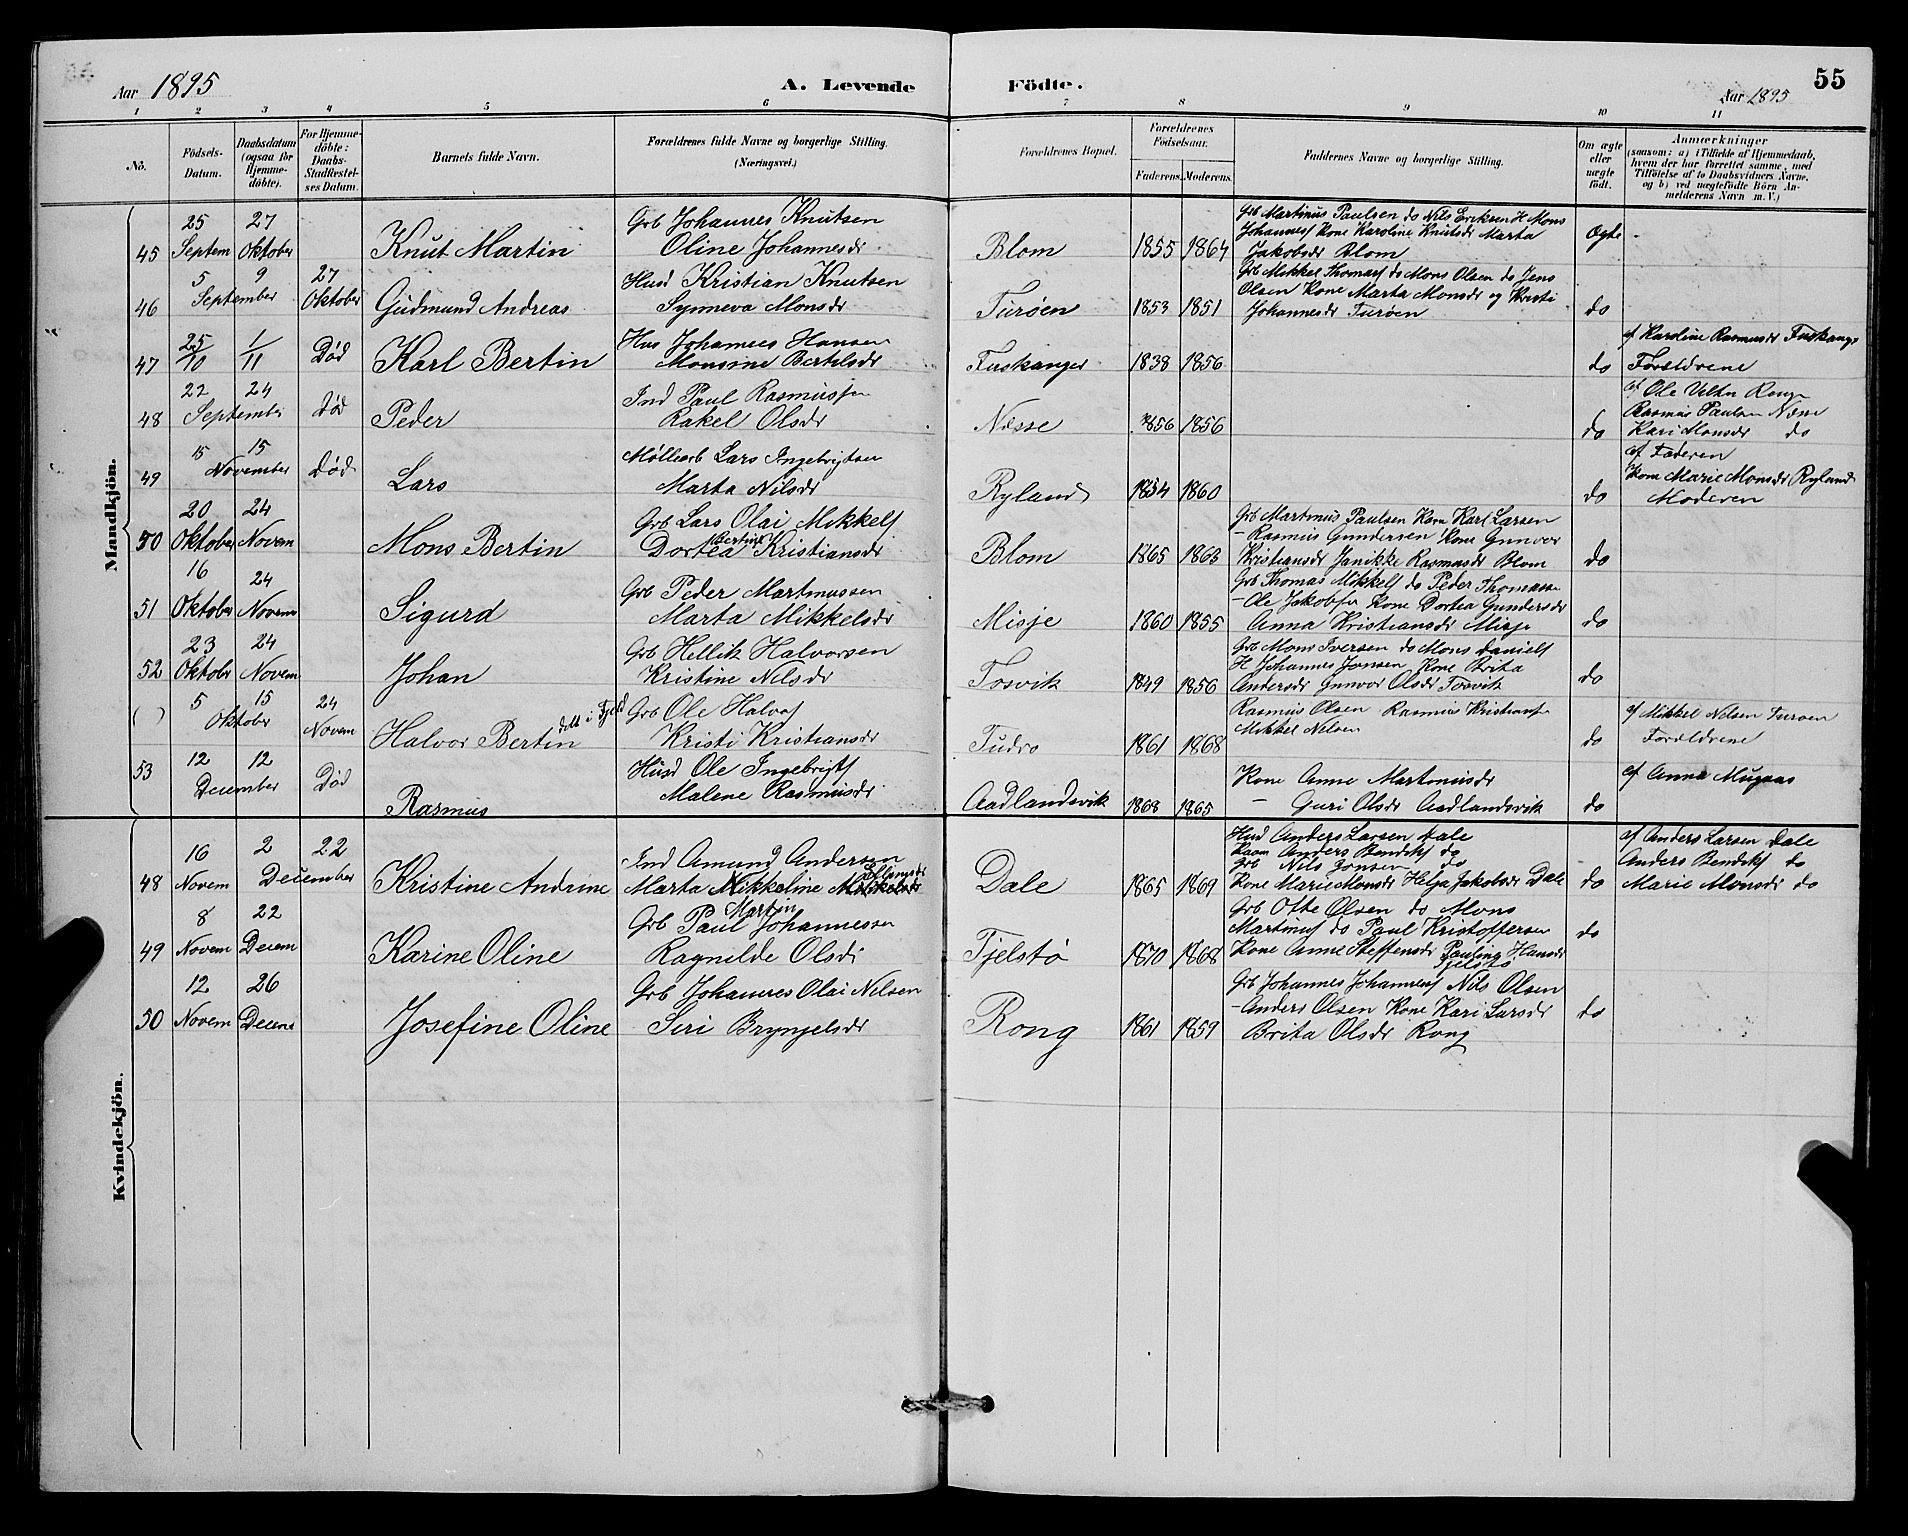 Aar 1895
A. Levende Födte.
Aar 1895
55
1 2 3 4 5 6 7 8 9 10 11
No.
Födsels-Datum.
Daabsdatum (ogsaa for Hjemme-döbte).
For Hjemme-döbte: Daabs-Stadfæstelses Datum.
Barnets fulde Navn.
Forældrenes fulde Navne og borgerlige Stilling.
(Næringsvei.)
Forældrenes Bopæl.
Forældrenes Födselsaar.
Faderens. Moderens.
Faddernes Navne og borgerlige Stilling.
Om ægte eller uægte födt.
Anmærkninger
(saasom: a) i Tilfælde af Hjemmedaab,
hvem der har forrettet samme, med
Tilföielse af to Daabsvidners Navne,
og b) ved uægtefödte Börn An-
melderens Navn m. V.)
Mandkjön.
45 25 Septem 27 Oktober Knut Martin
Grb Johannes Knutsen
Oline Johannesdr
Blom 1855 1864
Grb Martinus Paulsen do Nils Eriksen H Mons
Johannesf Kone Karoline Knutsdr Marta
Jakobsdr Blom
Ægte
46 5 9 September 27 Oktober Gudmund Andreas
Husd Kristian Knutsen
Synneva Monsdr
Turöen 1853 1851
Grb Mikkel Thomasf do Mons Olsen do Jens
Olsen Kone Marta Monsdr og Kristi
Johannesdr Turöen
do
47 25/10 1/11 Död Karl Bertin
Hus Johannes Hansen
Monsine Bertelsdr
Fuskanger 1838 1856
do
af Karoline Rasmusdr Fuskange
Forældrene
48 22 24 Septembr Död Peder
Ind Paul Rasmussen
Rakel Olsdr
Næsse 1856 1856
do
af Ole Rong
Rasmus Paulsen Næsse
Kari Monsdr do
49 15 15 November Död Lars
Möllearb Lars Ingebrigtsen
Marta Nilsdr
Ryland 1854 1860
do
af Faderen
Kone Marie Monsdr Ryland
Moderen
50 20 Oktober 24 Novem Mons Bertin
Grb Lars Olai Mikkelf
Dortea Bertine Kristiansdr
Blom 1865 1863
Grb Martinus Paulsen Kone Karl Larsen
- Rasmus Gundersen Kone Gunvor
Kristiansdr Janikke Rasmusdr Blom
do
51 16 Oktober 24 Novem Sigurd
Grb Peder Martinussen
Marta Mikkelsdr
Misje 1860 1855
Grb Thomas Mikkelf do Peder Thomassen
- Ole Jakobsen Kone Dortea Gundersdr
Anna Kristiansdr Misje
do
52 23 Oktobr 24 Novem Johan
Grb Hellik Halvorsen
Kristine Nilsdr
Tosvik 1849 1856
Grb Mons Iversen do Mons Danielf
H Johannes Jonsen Kone Brita
Andersdr Gunvor Olsdr Tosvik
do
( ) 5 15 Oktober 24 Novem Halvor Bertin döbt i Fjeld
Grb Ole Halvorf
Kristi Kristiansdr
1861 1868
Rasmus Olsen Rasmus Kristiansf
Mikkel Nilsen
do
af Mikkel Nilsen Turöen
Forældrene
53 12 12 December Död Rasmus
Husd Ole Ingebrigtf
Malene Rasmusdr
Aadlandsvik 1868 1865
Kone Anne Martinusdr
- Guri Olsdr Aadlandsvik
do
af Anna Mugaas
Kvindekjön.
48 16 Novem 2 22 December Kristine Andrine
Ind Amund Andersen
Marta Mikkeline Ellingsdr
Dale 1865 1869
Husd Anders Larsen Dale
Anders Bendiksf do
Grb Nils Jonsen do
Kone Marie Monsdr Helga Jakobsdr Dale
do
af Anders Larsen Dale
Anders Bendikf do
Marie Monsdr do
49 8 Novem 22 Decem Karine Oline
Grb Paul Martin Johannessen
Ragnilde Olsdr
Tjelstø 1870 1868
Grb Otte Olsen do Mons
Martinusf do Paul Kristoffersen
Kone Anne Steffensdr Pauline Hansdr
Tjelstø
do
50 12 Novem 26 Decem Josefine Oline
Grb Johannes Olai Nilsen
Siri Brynjelsdr
Rong 1861 1859
Grb Johannes Johannesf Nils Olsen
- Anders Olsen Kone Kari Larsdr
Brita Olsdr Rong
do